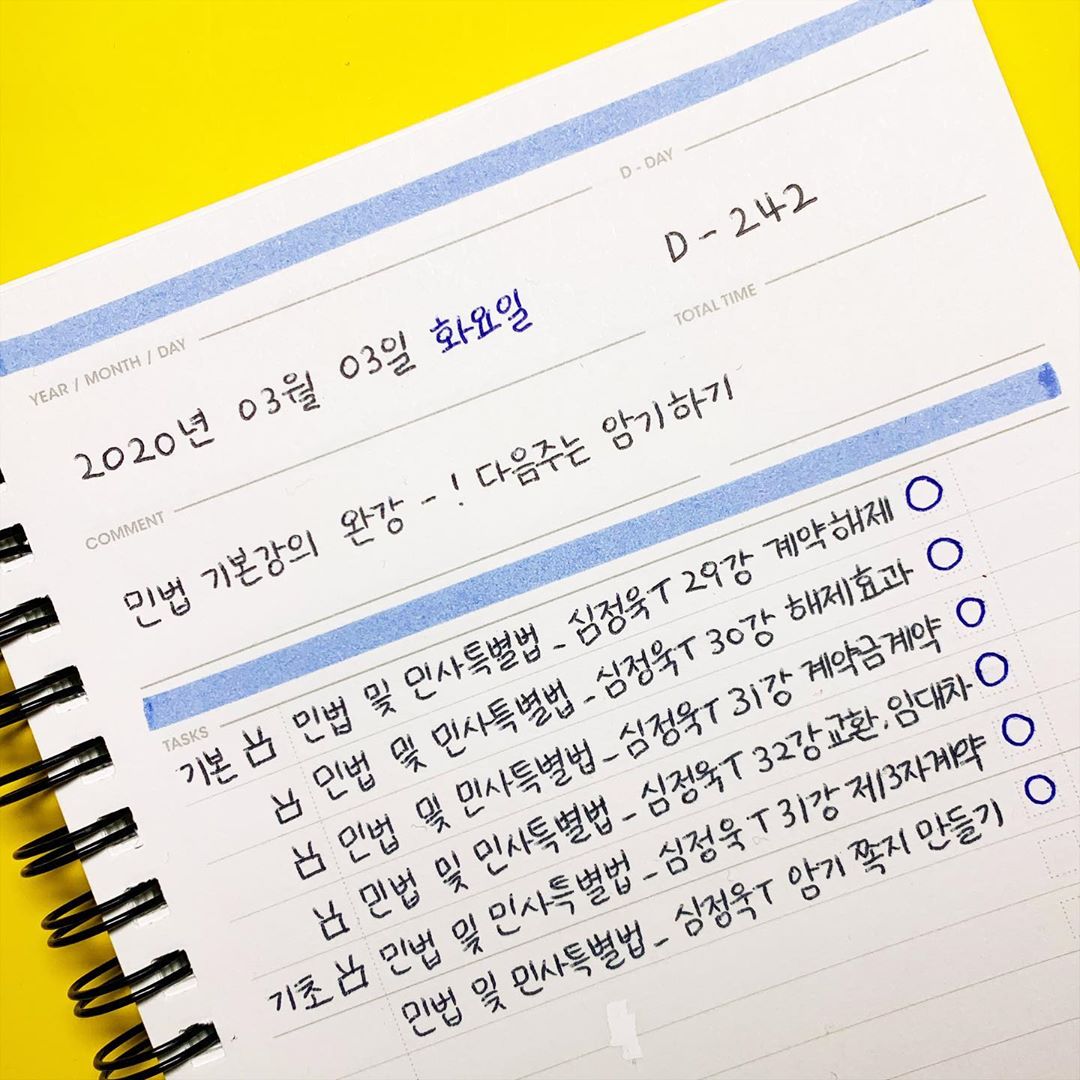 D-DAY
YEAR / MONTH / DAY
D-242
2020년 03월 03일 화요일
TOTAL TIME
COMMENT
민법 기본강의 완강 - ! 다음주는 암기하기
TASKS
기본 민법 및 민사특별법 - 심정욱T 29강 계약해제 O
민법 및 민사특별법 - 심정욱T 30강 해제효과 O
민법 및 민사특별법 - 심정욱T 31강 계약금계약 O
민법 및 민사특별법 - 심정욱T 32강 교환.임대차 O
기초 민법 및 민사특별법 - 심정욱T 31강 제3자계약 O
민법 및 민사특별법 - 심정욱T 암기 쪽지 만들기 O